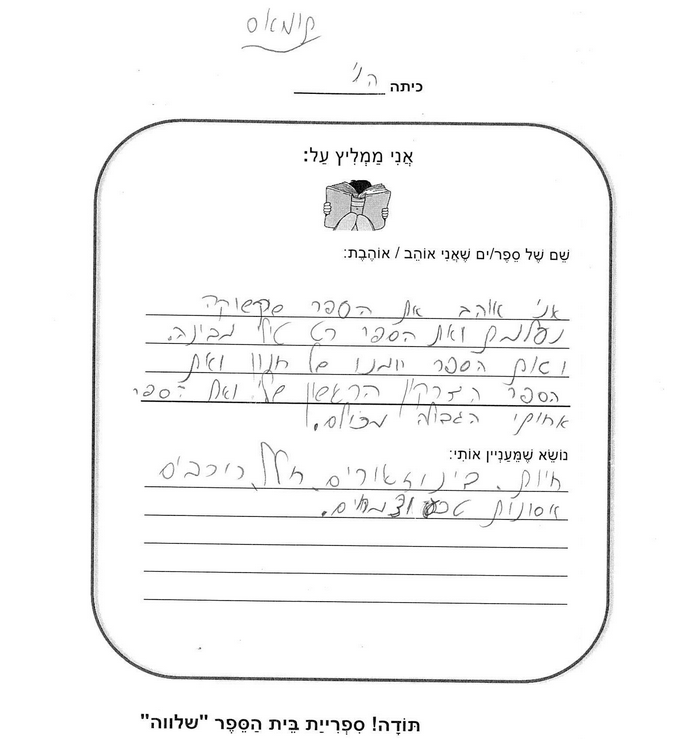 תומאס
כיתה הני
אֲנִי מַמְלִיץ עַל:
שֵׁם שֶׁל סֵפֶר/ים שֶׁאֲנִי אוֹהֵב / אוֹהֶבֶת:
אני אוהב את הספר שקשוקה
נעלמת ואת הספר רט טיל מבינה.
ואות הספר יומנו של חנון ואת
הספר הצדקין הראשון שלי ואת הספר
אחותי הגבולה מכולם.
נוֹשֵׂא שֶׁמְּעַנְיֵין אוֹתִי:
חיות, בינוזאורים, חלל, רוכבים
אסונות טבע וצמחים.
תּוֹדָה! סִפְרִיַּית בֵּית הַסֵּפֶר "שלווה"